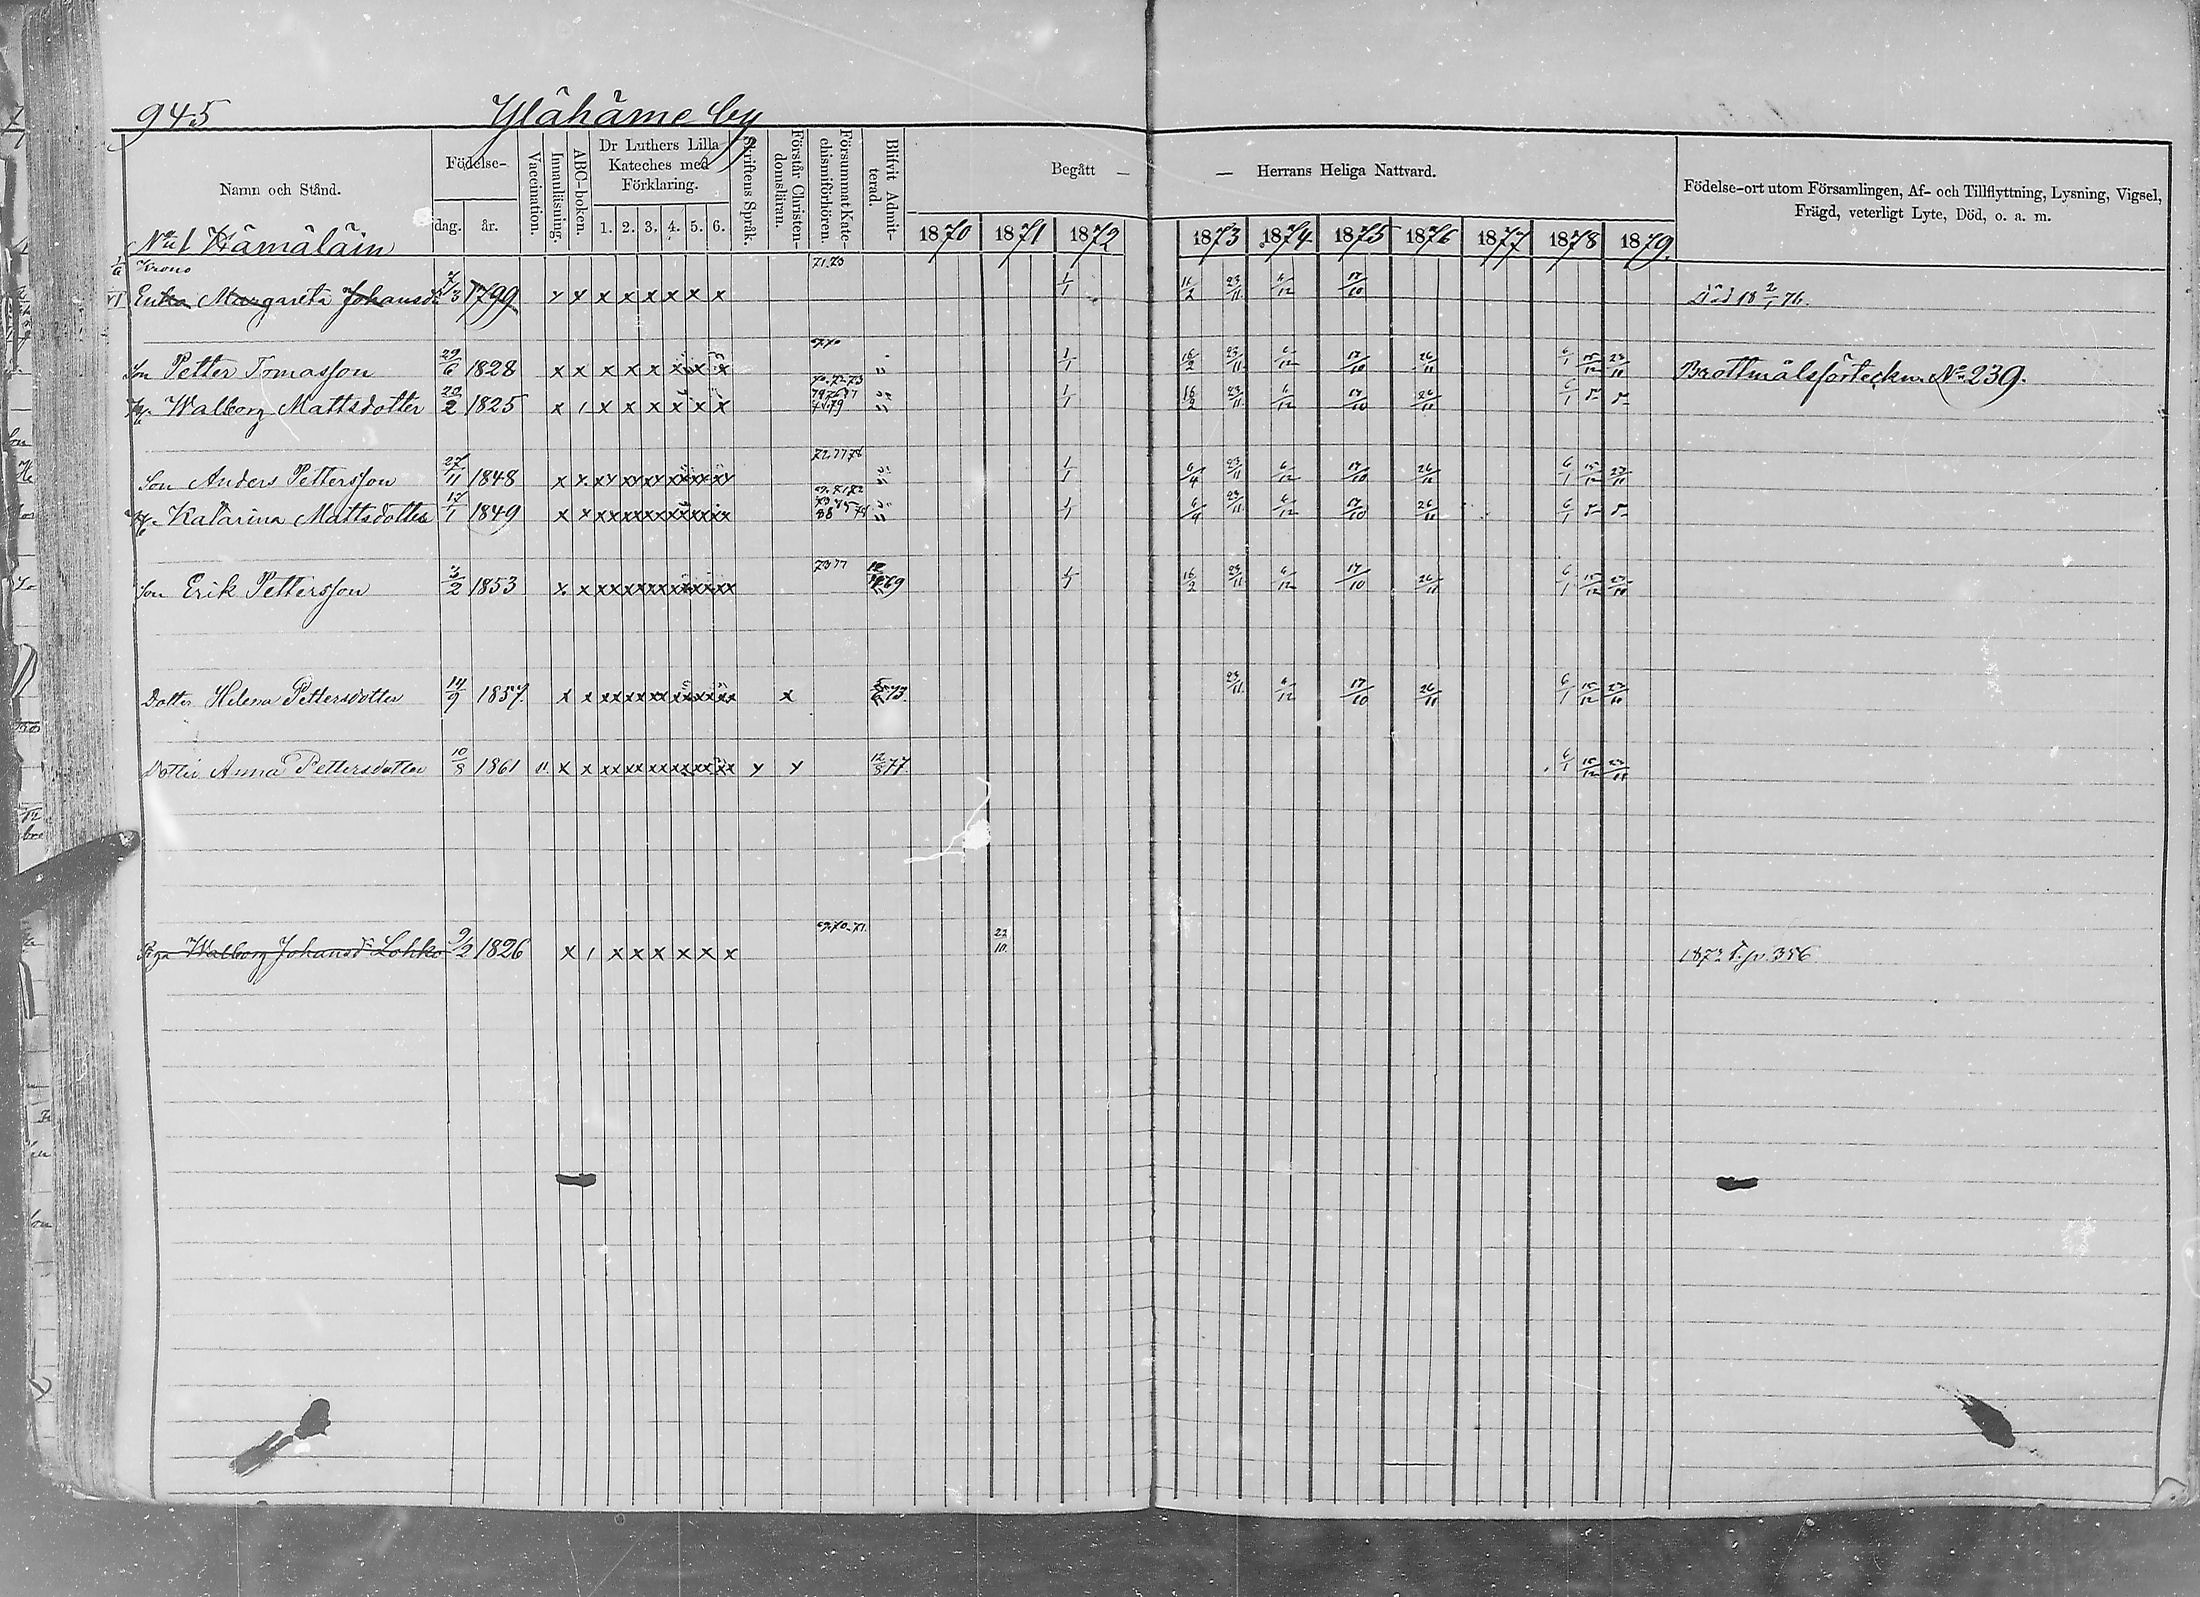 945 Yläháme by
Namn och Stånd.
Födelse-
dag. år.
Vaccination.
Innanläsning.
ABC-boken.
Dr Luthers Lilla
Kateches med
Förklaring.
1. 2. 3. 4. 5. 6.
Skriftens Språk.
Förstår Christen-
domsläran.
Försummat Kate-
chismiförhören.
Blifvit Admit-
terad.
Begått — — Herrans Heliga Nattvard.
1870 1871 1872 1873 1874 1875 1876 1877 1878 1879
Födelse-ort utom Församlingen, Af- och Tillflyttning, Lysning, Vigsel,
Frägd, veterligt Lyte, Död, o. a. m.
No 1 Hämäläin
Krono 71.73
Margareta Johansd. 1799 x x x x x x x x 1/1 16/2 23/11 6/12 17/10 Död 18 2/1 76.
Son Petter Tomasson 29/6 1828 x x x x x x x x 1/1 16/2 23/11 6/12 17/10 26/11 6/1 15/12 23/11 Brottmålsförteckn. No 239.
Walborg Mattsdotter 2 1825 x / x x x x x x 1/1 16/2 23/11 6/12 17/10 26/11 6/1
Son Anders Pettersson 27/11 1848 1/1 6/4 23/11 6/12 17/10 26/11 6/1 15/12 23/11
Katarina Mattsdotter 17/1 1849 1/1 6/4 23/11 6/12 17/10 26/11 6/1
Son Erik Pettersson 3/2 1853 73 77 69 1/1 16/2 23/11 6/12 17/10 26/11 6/1 15/12 23/11
Dotter Helena Pettersdotter 14/9 1857. x 73. 23/11 6/12 17/10 26/11 6/1 15/12 23/11
Dotter Anna Pettersdotter 10/8 1861 12/8 77 6/1 15/12 23/11
Piga Walborg Johansd. Lohko 9/2 1826 x / x x x x x x 69.70.71. 22/10. 1872 T. p. 356